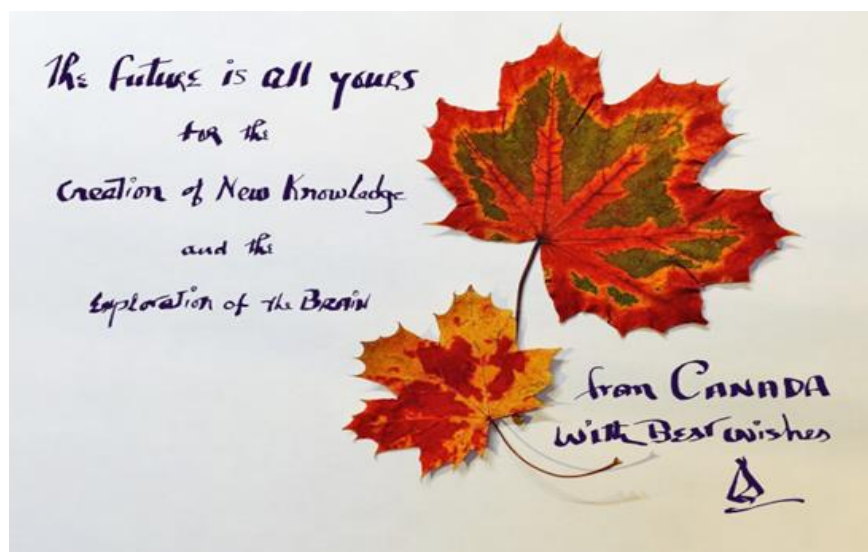 The future is all yours
for the
Creation of New Knowledge
and the
Exploration of the BRAIN
from CANADA
With Best wishes